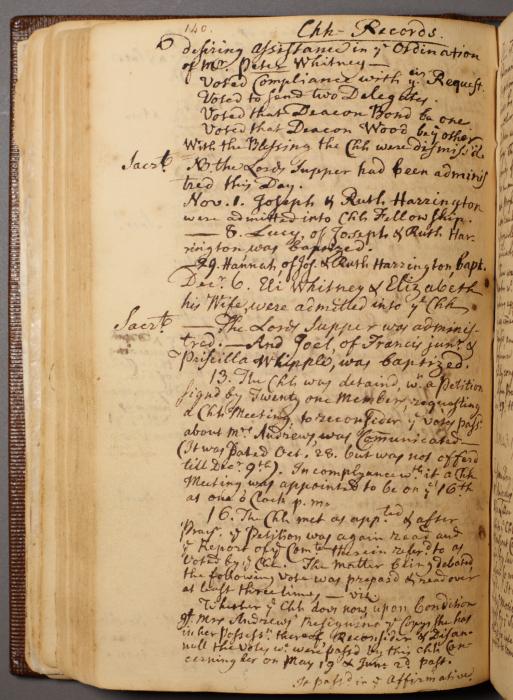 140.
Chh- Records.
desiring assistance in ye Ordination
of Mr. Peter Whitney —
Voted Compliance with yeir Request.
Voted to send two Delegates.
Voted that Deacon Bond be one
Voted that Deacon Wood be ye other
With the Blessing the Chh were dismiss'd
Sacrt. NB the Lords Supper had been adminis
tred this Day.
Nov. 1. Joseph & Ruth Harrington
were admitted into Chh Fellowship.
— 8. Lucy, of Joseph & Ruth Har-
rington was baptized.
— 29. Hannah, of Jos. & Ruth Harrington bapt.
Decr. 6. Eli Whitney & Elizabeth
his Wife, were admitted into ye Chh
Sacrt. — The Lords Supper was adminis-
tred. — And Joel, of Francis junr. &
Priscilla Whipple, was baptized.
13. The Chh was detaind, wn a Petition
signd by Twenty one Members requesting
a Chh Meeting, to reconsider ye Votes pass'd
about Mrs Andrews, was Comunicated —
(It was Dated Oct. 28. but was not offerd
till Decr. 9th). In complyance wth it a Chh
Meeting was appointed to be on ye 16th
as one o Clock p. m.
16. The Chh met as appted & after
Prayr. ye Petition was again read and
ye Report of ye Comtee therein referd to as
Voted by ye Chh. The matter being debated
the following Vote was prepard & read over
at least three times — viz
Whether ye Chh does now, upon Condition
of Mrs Andrews's ye Copys she has
in her Possessn. thereof, Reconsider & Disan-
null the Votes wc. were passd by this chh Con-
cerning her on May 19 & June 2d past.
It passd in ye Affirmative